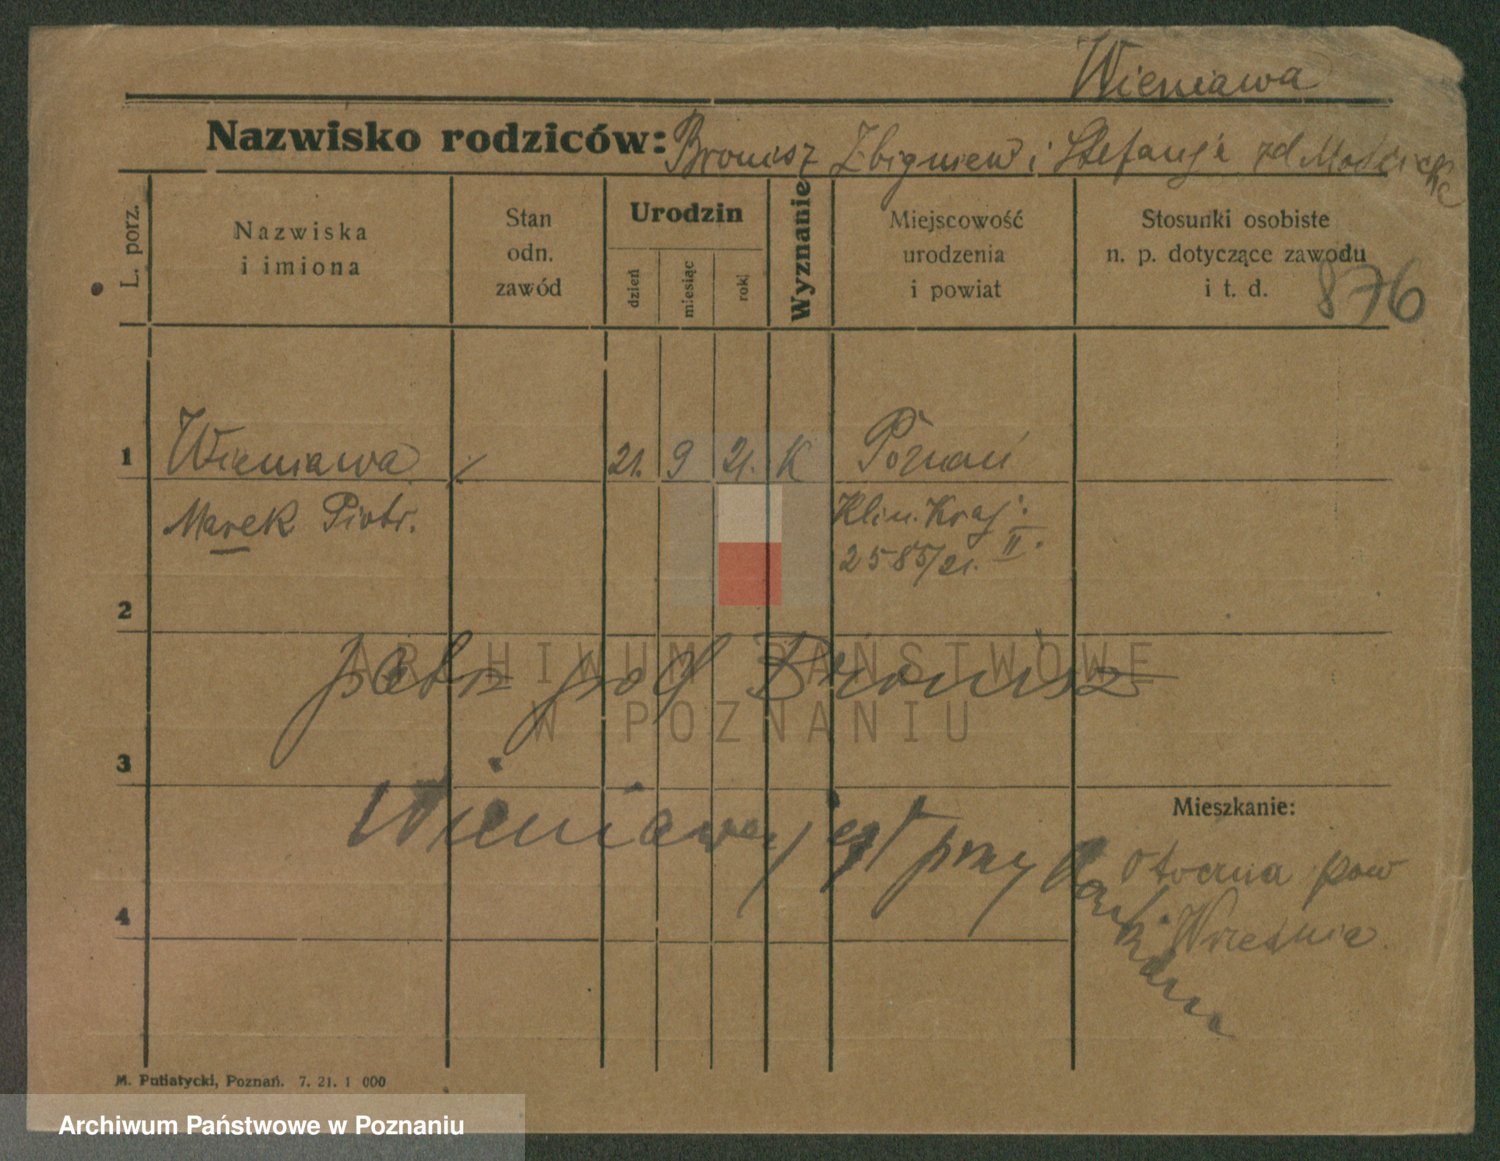 Wieniawa
Nazwisko rodziców: Bronisz Zbigniew i Stefanja zd Mościcka
L. porz.
Nazwiska
i imiona
Stan
odn.
zawód
Urodzin
dzień
miesiąc
rok
Wyznanie
Miejscowość
urodzenia
i powiat
Stosunki osobiste
n. p. dotyczące zawodu
i t. d.
876
1 Wieniawa / 21. 9 21. K Poznań
Marek Piotr. Klin. Kraj.
2585/21. II.
2
patrz pod Bronisz
ARCHIWUM PAŃSTWOWE
W POZNANIU
3
Wieniawa jest przy
Mieszkanie:
Otoczna pow
Września
4
M. Putiatycki, Poznań. 7. 21. 1 000
Archiwum Państwowe w Poznaniu